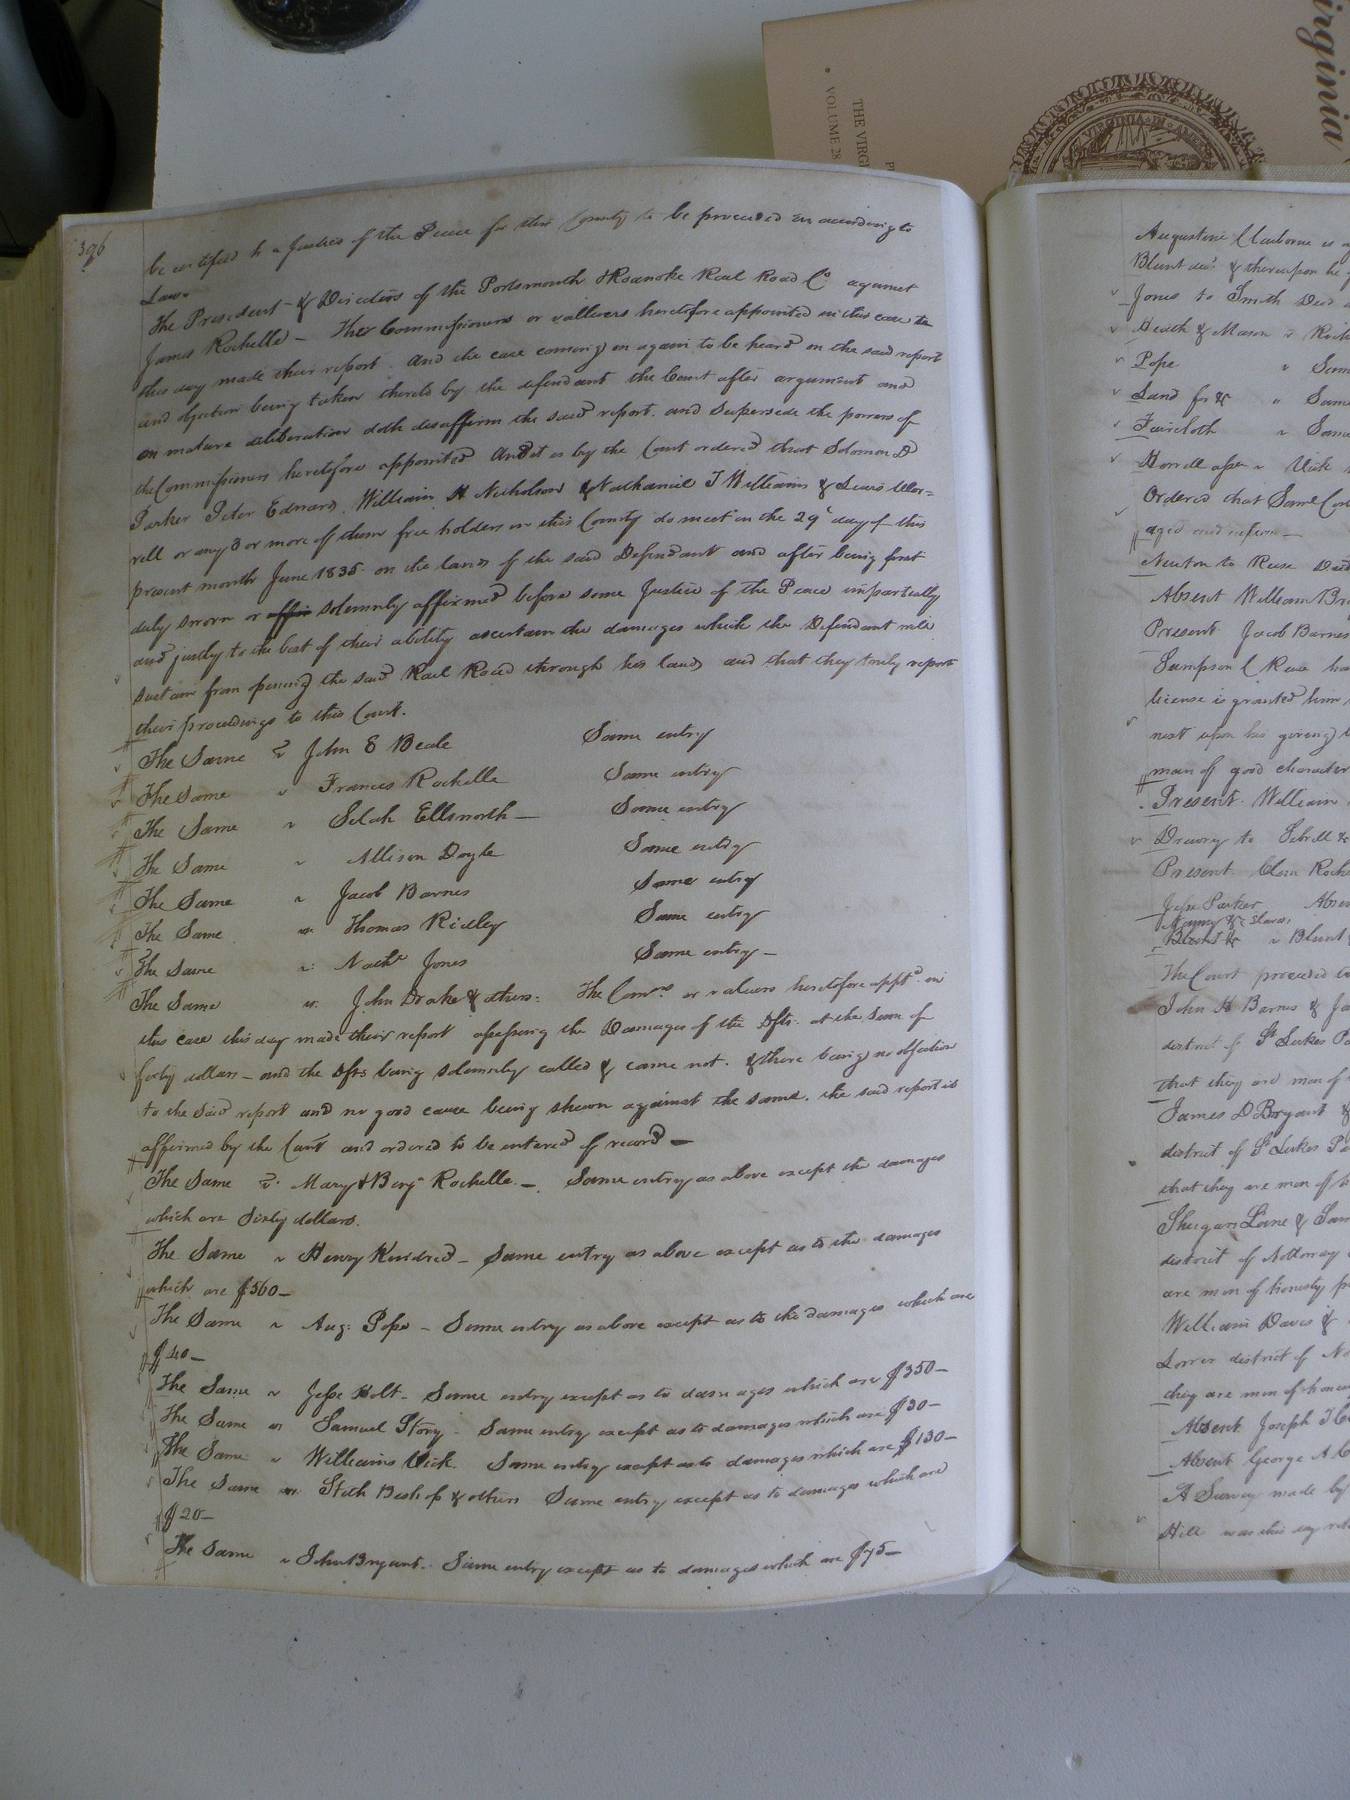 396
be certified to a Justice of the Peace for this County to be proceeded on according to
Law.
The President & Directors of the Portsmouth & Roanoke Rail Road Co against
James Rochelle - The Commissioners or valluers heretofore appointed in this case
this day made their report. And the case coming on again to be heard on the said report
and objection being taken thereto by the defendant the Court after argument and
on mature deliberation doth desaffirm the said report. and Supersede the powers of
the Commissioners heretofore appointed And it is by the Court ordered that Solomon D
Parker Peter Edwards, William H Nicholson & Nathaniel T Williams & Lewis Wor=
rell or any 3 or more of them free holders in this County do meet on the 29th day of this
present month June 1835 on the lands of the said Defendant and after being first
duly sworn or solemnly affirmed before some Justice of the Peace impartially
and justly to the best of their ability ascertain the damages which the Defendant will
sustain from opening the said Rail Road through his lands and that they truly report
their proceedings to this Court.
The Same vs John E Beale Same entry
The Same " Frances Rochelle Same entry
The Same " Selah Ellsworth — Same entry
The Same " Allison Doyle Same entry
The Same " Jacob Barnes Same entry
The Same vs Thomas Ridley Same entry
The Same vs Nathl Jones Same entry —
The Same vs. John Drake & others: The Comrs or valuers heretofore apptd in
this case this day made their report assessing the Damages of the Dfts. at the Sum of
forty dollars - and the Dfts being solemnly called & came not. & there being no objection
to the said report and no good cause being shewn against the same. the said report is
affirmed by the Court and ordered to be entered of record —
The Same vs. Mary & Benja Rochelle. — Same entry as above except the damages
which are Sixty dollars.
The Same " Henry Kindred — Same entry as above except as to the damages
which are $560 —
The Same " Aug: Pope — Same entry as above except as to the damages which are
$40 —
The Same " Jesse Holt — Same entry except as to damages which are $350 —
The Same vs Samuel Story — Same entry except as to damages which are $30 —
The Same " Williams Vick. Same entry except as to damages which are $130 —
The Same vs. Stith Bishop & others Same entry except as to damages which are
$20 —
The Same " John Bryant. Same entry except as to damages which are $75 —
Augustine Claiborne
Blunt decd & thereupon he
Jones to Smith Deed
Heath & Mason "
Pope " Same
Land for & " Same
Faircloth " Same
Worrell asse " Vick
Ordered that Saml
aged and infirm —
Newton to Reese Deed
Absent William
Present Jacob Barnes
Sampson C Reese
license is granted him
next upon his giving
man of good character
Present. William
Drewry to Sebrell &
Present Clem
Jesse Parker Absent
" Blunt
The Court proceeded to
John H Barnes &
district of St Lukes
that they are men of
James D Bryant &
district of St Lukes
that they are men of
Shugars Lane &
district of Nottoway
are men of honesty
William Davis &
Lower district of
they are men of honesty
Absent Joseph T
Absent George A
A Survey made by
Hill was this day
irginia
THE VIRG
VOLUME 28
VIRGINIA